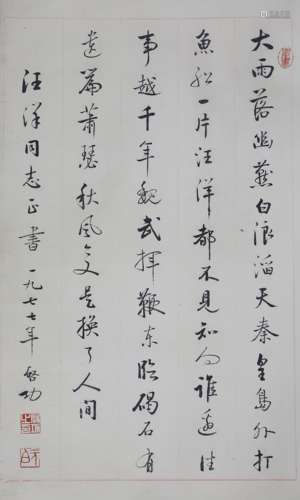 大雨落幽燕白浪滔天秦皇島外打
魚船一片汪洋都不見知向誰邊往
事越千年魏武揮鞭東臨碣石有
遺篇蕭瑟秋風今又是換了人間
汪洋同志正書 一九七七年 啓功